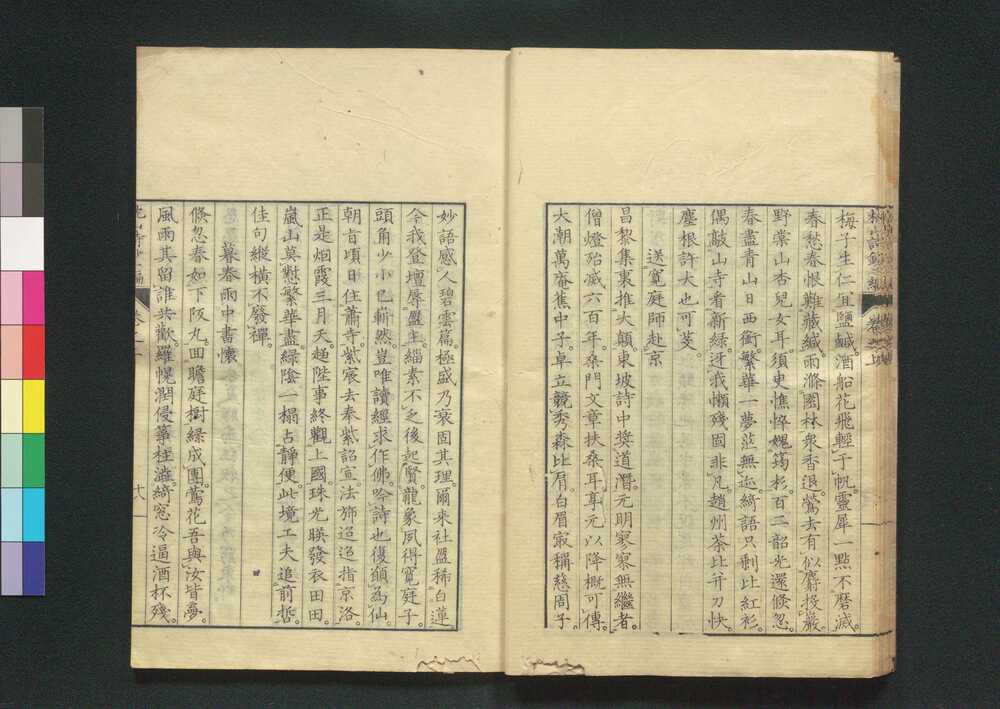 梅子生仁宜鹽鹹。酒船花飛輕于帆。靈犀一點不磨滅。
春愁春恨難藏緘。雨滌園林衆香退。鶯去有似麝投巖。
野棠山杏兒女耳。須臾憔悴媿筠杉。百二韶光還倏忽。
春盡青山日西銜。繁華一夢茫無迹。綺語只剩比紅衫。
偶敲山寺看新綠。迓我懶殘固非凡。趙州茶比幷刀快。
塵根許大也可芟。
送寛庭師赴京
昌黎集裏推大顛。東坡詩中奬道潛。元明寥寥無繼者。
僧燈殆滅六百年。桑門文章扶桑耳。享元以降概可傳。
大潮萬庵蕉中子。卓立競秀森比肩。白眉寂稱慈周子。
妙語感人碧雲篇。極盛乃衰固其理。爾来社盟稀白蓮。
令我登壇辱盟主。緇素不乏後起賢。龍象夙得寛庭子。
頭角少小已嶄然。豈唯讀經求作佛。吟詩也復顉為仙。
朝昔頃日住蕭寺。紫宸去奉紫詔宣。法斾迢迢指京洛。
正是烟霞三月天。趨陛事終觀上國。珠光睒發衣田田。
嵐山莫愁繁華盡。綠陰一榻占靜便。此境工夫追前哲。
佳句縱横不廢禪。
暮春雨中書懷
倏忽春如下阪丸。回瞻庭樹綠成團。鶯花吾與汝皆夢。
風雨其留誰共歡。羅幌潤侵箏柱澁。綺窓冷逼酒杯殘。